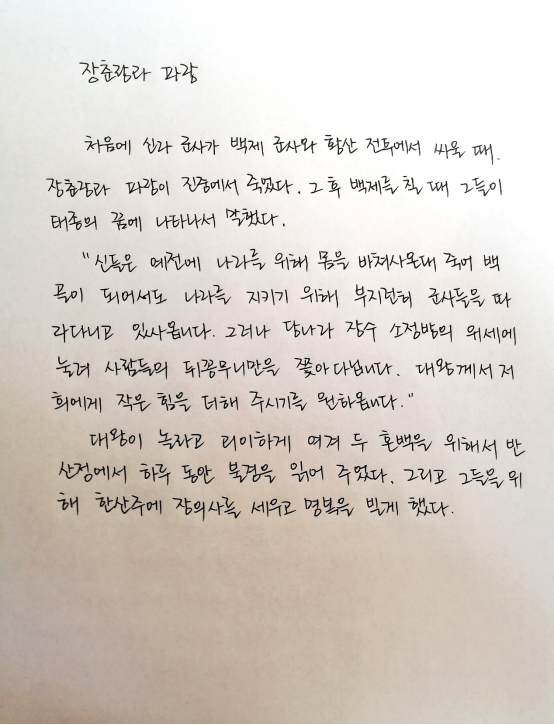 장춘랑과 파랑
처음에 신라 군사가 백제 군사와 황산 전투에서 싸울 때.
장춘랑과 파랑이 진중에서 죽었다. 그 후 백제를 칠 때 그들이
태종의 꿈에 나타나서 말했다.
"신들은 예전에 나라를 위해 몸을 바쳐사온대 죽어 백
골이 되어서도 나라를 지키기 위해 부지런히 군사들을 따
라다니고 있사옵니다. 그러나 당나라 장수 소정방의 위세에
눌려 사람들의 뒤꽁무니만을 쫓아다닙니다. 대왕께서 저
희에게 작은 힘을 더해 주시기를 원하옵니다."
대왕이 놀라고 괴이하게 여겨 두 혼백을 위해서 반
산정에서 하루 동안 불경을 읽어 주었다. 그리고 그들을 위
해 한산주에 장의사를 세우고 명복을 빌게 했다.